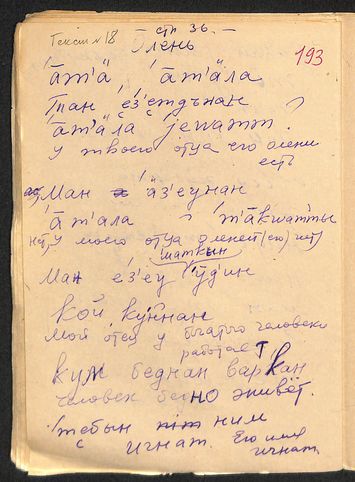 Текст №18
стр 36.
Олень
193
ӓ́т'ӓ, ӓ́т'ӓла
Тан е́з'етдънан
ӓ́т'ӓла jеwатт?
У твоего отца его олени
есть
Ман ӓз'еунан
ӓ́т'ала т'ӓ́кwатты
нет, у моего отца оленей (его) нет)
шаткын
Ман е́з'еу
кой
Мой отец у богатого человека
работает
кум беднан варкан
человек бедно живёт.
тебын ним
игнат. Его имя
игнат.